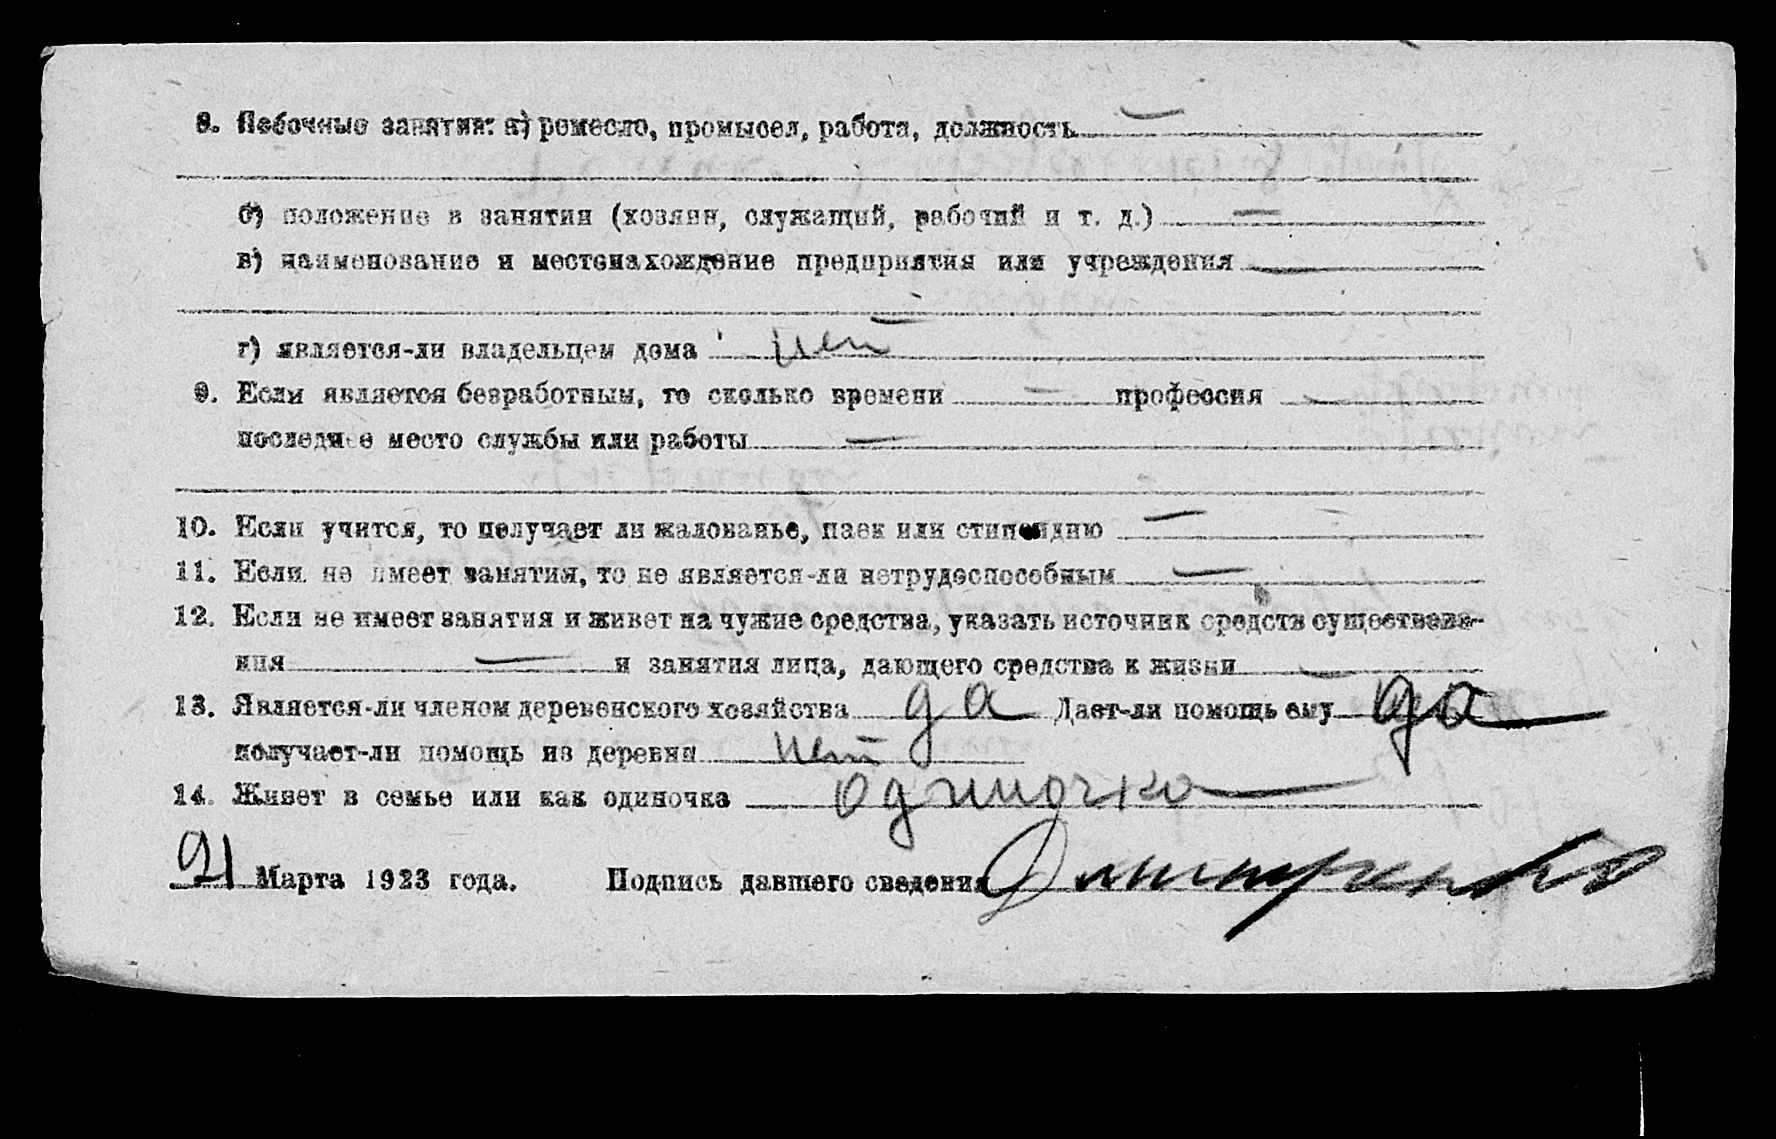 8. Побочные занятия: а) ремесло, промысел, работа, должность —
б) положение в занятии (хозяин, служащий, рабочий и т. д.) —
в) наименование и местонахождение предприятия или учреждения —
г) является-ли владельцем дома нет
9. Если является безработным, то сколько времени — профессия —
последнее место службы или работы —
10. Если учится, то получает ли жалованье, паек или стипендию —
11. Если не имеет занятия, то не является-ли нетрудоспособным —
12. Если не имеет занятия и живет на чужие средства, указать источник средств существова-
ния — и занятия лица, дающего средства к жизни —
13. Является-ли членом деревенского хозяйства да Дает-ли помощь ему да
получает-ли помощь из деревни нет
14. Живет в семье или как одиночка одиночко
21 Марта 1923 года. Подпись давшего сведения Дмитренко